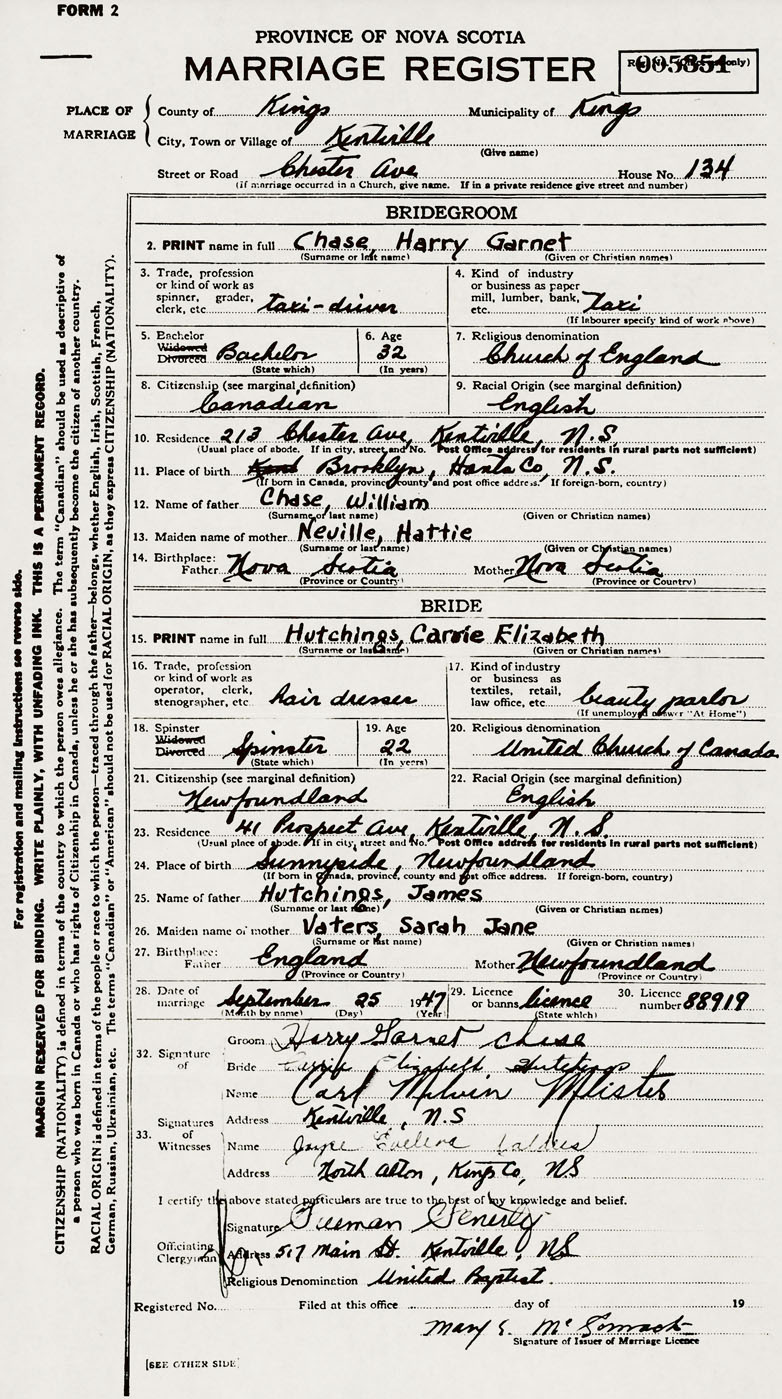 FORM 2
PROVINCE OF NOVA SCOTIA
MARRIAGE REGISTER
005351
PLACE OF MARRIAGE
County of Kings Municipality of Kings
City, Town or Village of Kentville
(Give name)
Street or Road Chester Ave House No. 134
(If marriage occurred in a Church, give name. If in a private residence give street and number)
BRIDEGROOM
2. PRINT name in full Chase, Harry Garnet
(Surname or last name) (Given or Christian names)
3. Trade, profession or kind of work as spinner, grader, clerk, etc. taxi-driver
4. Kind of industry or business as paper mill, lumber, bank, etc. Taxi
(If labourer specify kind of work above)
5. Bachelor Widowed Divorced Bachelor
(State which)
6. Age 32
(In years)
7. Religious denomination
Church of England
8. Citizenship (see marginal definition)
Canadian
9. Racial Origin (see marginal definition)
English
10. Residence 213 Chester Ave, Kentville, N.S.
(Usual place of abode. If in city, street, and No. Post Office address for residents in rural parts not sufficient)
11. Place of birth Brooklyn, Hants Co, N.S.
(If born in Canada, province, county and post office address. If foreign-born, country)
12. Name of father Chase, William
(Surname or last name) (Given or Christian names)
13. Maiden name of mother Neville, Hattie
(Surname or last name) (Given or Christian names)
14. Birthplace:
Father Nova Scotia Mother Nova Scotia
(Province or Country) (Province or Country)
BRIDE
15. PRINT name in full Hutchings, Carrie Elizabeth
(Surname or last name) (Given or Christian names)
16. Trade, profession or kind of work as operator, clerk, stenographer, etc. hair dresser
17. Kind of industry or business as textiles, retail, law office, etc. beauty parlor
(If unemployed answer "At Home")
18. Spinster Widowed Divorced Spinster
(State which)
19. Age 22
(In years)
20. Religious denomination
United Church of Canada
21. Citizenship (see marginal definition)
Newfoundland
22. Racial Origin (see marginal definition)
English
23. Residence 41 Prospect Ave, Kentville, N.S.
(Usual place of abode. If in city, street and No. Post Office address for residents in rural parts not sufficient)
24. Place of birth Sunnyside, Newfoundland
(If born in Canada, province, county and post office address. If foreign-born, country)
25. Name of father Hutchings, James
(Surname or last name) (Given or Christian names)
26. Maiden name of mother Vaters, Sarah Jane
(Surname or last name) (Given or Christian names)
27. Birthplace:
Father England Mother Newfoundland
(Province or Country) (Province or Country)
28. Date of marriage September 25 1947
(Month by name) (Day) (Year)
29. Licence or banns licence
(State which)
30. Licence number 88919
32. Signature of
Groom Harry Garnet Chase
Bride Carrie Elizabeth Hutchings
33. Signatures of Witnesses
Name Carl Melvin
Address Kentville, N.S
Name Joyce Evelena
Address North Alton, Kings Co, NS
I certify the above stated particulars are true to the best of my knowledge and belief.
Officiating Clergyman
Signature Freeman Fenerty
Address 517 Main St. Kentville, NS
Religious Denomination United Baptist.
Registered No. Filed at this office day of 19
Mary E.
Signature of Issuer of Marriage Licence
[SEE OTHER SIDE]
For registration and mailing instructions see reverse side.
MARGIN RESERVED FOR BINDING. WRITE PLAINLY, WITH UNFADING INK. THIS IS A PERMANENT RECORD.
CITIZENSHIP (NATIONALITY) is defined in terms of the country to which the person owes allegiance. The term "Canadian" should be used as descriptive of
a person who was born in Canada or who has rights of Citizenship in Canada, unless he or she has subsequently become the citizen of another country.
RACIAL ORIGIN is defined in terms of the people or race to which the person—traced through the father—belongs, whether English, Irish, Scottish, French,
German, Russian, Ukrainian, etc. The terms "Canadian" or "American" should not be used for RACIAL ORIGIN, as they express CITIZENSHIP (NATIONALITY).